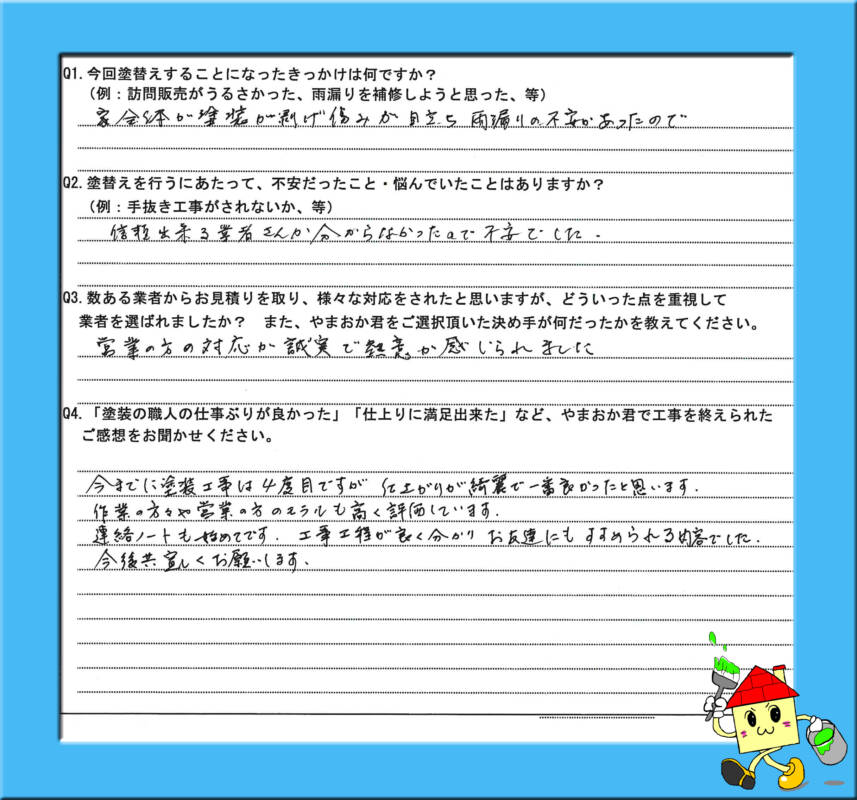 Q1. 今回塗替えすることになったきっかけは何ですか？
（例：訪問販売がうるさかった、雨漏りを補修しようと思った、等）
家全体が塗装が剥げ傷みが目立ち雨漏りの不安があったので
Q2. 塗替えを行うにあたって、不安だったこと・悩んでいたことはありますか？
（例：手抜き工事がされないか、等）
信頼出来る業者さんか分からなかったので不安でした．
Q3. 数ある業者からお見積りを取り、様々な対応をされたと思いますが、どういった点を重視して
業者を選ばれましたか？　また、やまおか君をご選択頂いた決め手が何だったかを教えてください。
営業の方の対応が誠実で熱意が感じられました
Q4. 「塗装の職人の仕事ぶりが良かった」「仕上りに満足出来た」など、やまおか君で工事を終えられた
ご感想をお聞かせください。
今までに塗装工事は4度目ですが 仕上がりが綺麗で一番良かったと思います．
作業の方々や営業の方のモラルも高く評価しています．
連絡ノートも始めてです．工事工程が良く分かり お友達にもすすめられる内容でした．
今後共宜しくお願いします．